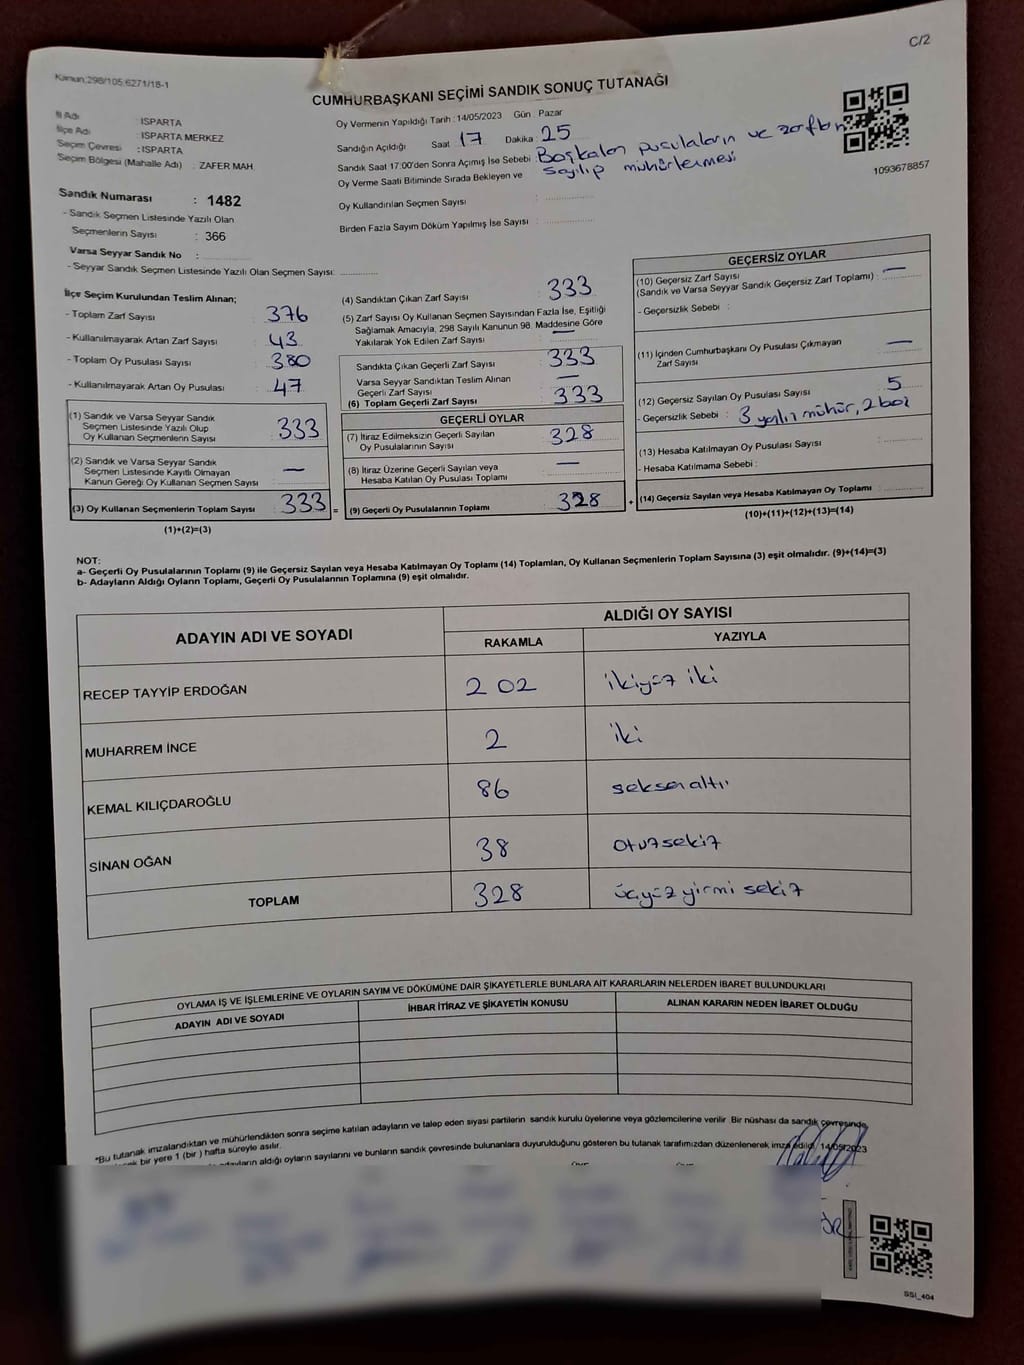 C/2
Kanun;298/105;6271/18-1
CUMHURBAŞKANI SEÇİMİ SANDIK SONUÇ TUTANAĞI
İl Adı : ISPARTA
İlçe Adı : ISPARTA MERKEZ
Seçim Çevresi : ISPARTA
Seçim Bölgesi (Mahalle Adı) : ZAFER MAH.
Sandık Numarası : 1482
- Sandık Seçmen Listesinde Yazılı Olan
Seçmenlerin Sayısı : 366
Varsa Seyyar Sandık No :
- Seyyar Sandık Seçmen Listesinde Yazılı Olan Seçmen Sayısı:
Oy Vermenin Yapıldığı Tarih : 14/05/2023 Gün : Pazar
Sandığın Açıldığı Saat 17 Dakika 25
Sandık Saat 17:00'den Sonra Açımış İse Sebebi : Başkalan pusulaların ve zarfların
sayılıp mühürlenmesi
Oy Verme Saati Bitiminde Sırada Bekleyen ve
Oy Kullandırılan Seçmen Sayısı :
Birden Fazla Sayım Döküm Yapılmış İse Sayısı :
1093678857
İlçe Seçim Kurulundan Teslim Alınan;
- Toplam Zarf Sayısı : 376
- Kullanılmayarak Artan Zarf Sayısı : 43
- Toplam Oy Pusulası Sayısı : 380
- Kullanılmayarak Artan Oy Pusulası : 47
(1) Sandık ve Varsa Seyyar Sandık
Seçmen Listesinde Yazılı Olup
Oy Kullanan Seçmenlerin Sayısı : 333
(2) Sandık ve Varsa Seyyar Sandık
Seçmen Listesinde Kayıtlı Olmayan
Kanun Gereği Oy Kullanan Seçmen Sayısı : —
(3) Oy Kullanan Seçmenlerin Toplam Sayısı : 333 =
(1)+(2)=(3)
(4) Sandıktan Çıkan Zarf Sayısı : 333
(5) Zarf Sayısı Oy Kullanan Seçmen Sayısından Fazla İse, Eşitliği
Sağlamak Amacıyla, 298 Sayılı Kanunun 98. Maddesine Göre
Yakılarak Yok Edilen Zarf Sayısı : —
Sandıkta Çıkan Geçerli Zarf Sayısı : 333
Varsa Seyyar Sandıktan Teslim Alınan
Geçerli Zarf Sayısı : —
(6) Toplam Geçerli Zarf Sayısı : 333
GEÇERLİ OYLAR
(7) İtiraz Edilmeksizin Geçerli Sayılan
Oy Pusulalarının Sayısı : 328
(8) İtiraz Üzerine Geçerli Sayılan veya
Hesaba Katılan Oy Pusulası Toplamı : —
(9) Geçerli Oy Pusulalarının Toplamı : 328 +
GEÇERSİZ OYLAR
(10) Geçersiz Zarf Sayısı
(Sandık ve Varsa Seyyar Sandık Geçersiz Zarf Toplamı) : —
- Geçersizlik Sebebi :
(11) İçinden Cumhurbaşkanı Oy Pusulası Çıkmayan
Zarf Sayısı : —
(12) Geçersiz Sayılan Oy Pusulası Sayısı : 5
- Geçersizlik Sebebi : 3 yanlış mühür, 2 boş
(13) Hesaba Katılmayan Oy Pusulası Sayısı :
- Hesaba Katılmama Sebebi :
(14) Geçersiz Sayılan veya Hesaba Katılmayan Oy Toplamı :
(10)+(11)+(12)+(13)=(14)
NOT:
a- Geçerli Oy Pusulalarının Toplamı (9) ile Geçersiz Sayılan veya Hesaba Katılmayan Oy Toplamı (14) Toplamları, Oy Kullanan Seçmenlerin Toplam Sayısına (3) eşit olmalıdır. (9)+(14)=(3)
b- Adayların Aldığı Oyların Toplamı, Geçerli Oy Pusulalarının Toplamına (9) eşit olmalıdır.
ADAYIN ADI VE SOYADI
ALDIĞI OY SAYISI
RAKAMLA YAZIYLA
RECEP TAYYİP ERDOĞAN 202 ikiyüz iki
MUHARREM İNCE 2 iki
KEMAL KILIÇDAROĞLU 86 seksenaltı
SİNAN OĞAN 38 otuzsekiz
TOPLAM 328 üçyüz yirmi sekiz
OYLAMA İŞ VE İŞLEMLERİNE VE OYLARIN SAYIM VE DÖKÜMÜNE DAİR ŞİKAYETLERLE BUNLARA AİT KARARLARIN NELERDEN İBARET BULUNDUKLARI
ADAYIN ADI VE SOYADI İHBAR İTİRAZ VE ŞİKAYETİN KONUSU ALINAN KARARIN NEDEN İBARET OLDUĞU
"Bu tutanak imzalandıktan ve mühürlendikten sonra seçime katılan adayların ve talep eden siyasi partilerin sandık kurulu üyelerine veya gözlemcilerine verilir. Bir nüshası da sandık çevresinde,
bir yere 1 (bir ) hafta süreyle asılır.
adayların aldığı oyların sayılarını ve bunların sandık çevresinde bulunanlara duyurulduğunu gösteren bu tutanak tarafımızdan düzenlenerek imza edildi. 14/05/2023
SSI_404